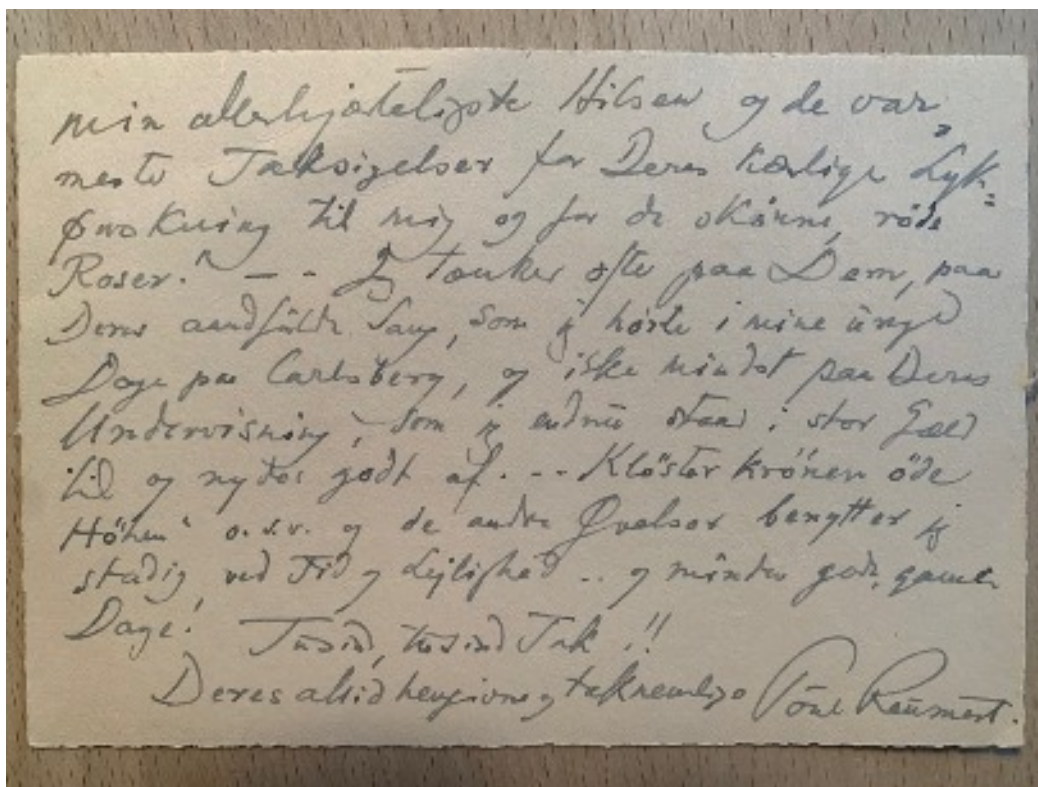 min allerhjerteligste Hilsen og de var,,
meste Taksigelser for Deres kærlige Lyk=
ønskning til mig og for de skönne, röde
Roser! — - Jeg tænker ofte paa Dem, paa
Deres aandfülde Sang, som jeg hørte i mine ünge
Dage paa Carlsberg, og ikke mindst paa Deres
Undervisning, som jeg endnü staar i stor Gæld
til og nyder godt af. -- Klöster krönen öde
Höhen" o.s.v. og de andre Øvelser benytter jeg
stadig, ved Tid og Lejlighed .. og mindes gode, gamle
Dage! Tüsind, tusind Tak !!
Deres altid hengivne og taknemlige Pöul Reümert.